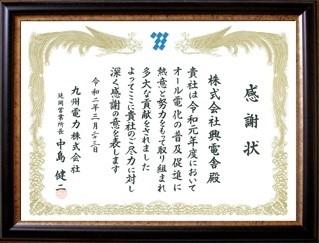 感謝状
株式会社興電舎殿
貴社は令和元年度において
オール電化の普及促進に
熱意と努力をもって取り組まれ
多大な貢献をされました
よってここに貴社のご尽力に対し
深く感謝の意を表します
令和二年三月二十三日
九州電力株式会社
延岡営業所長 中島健二